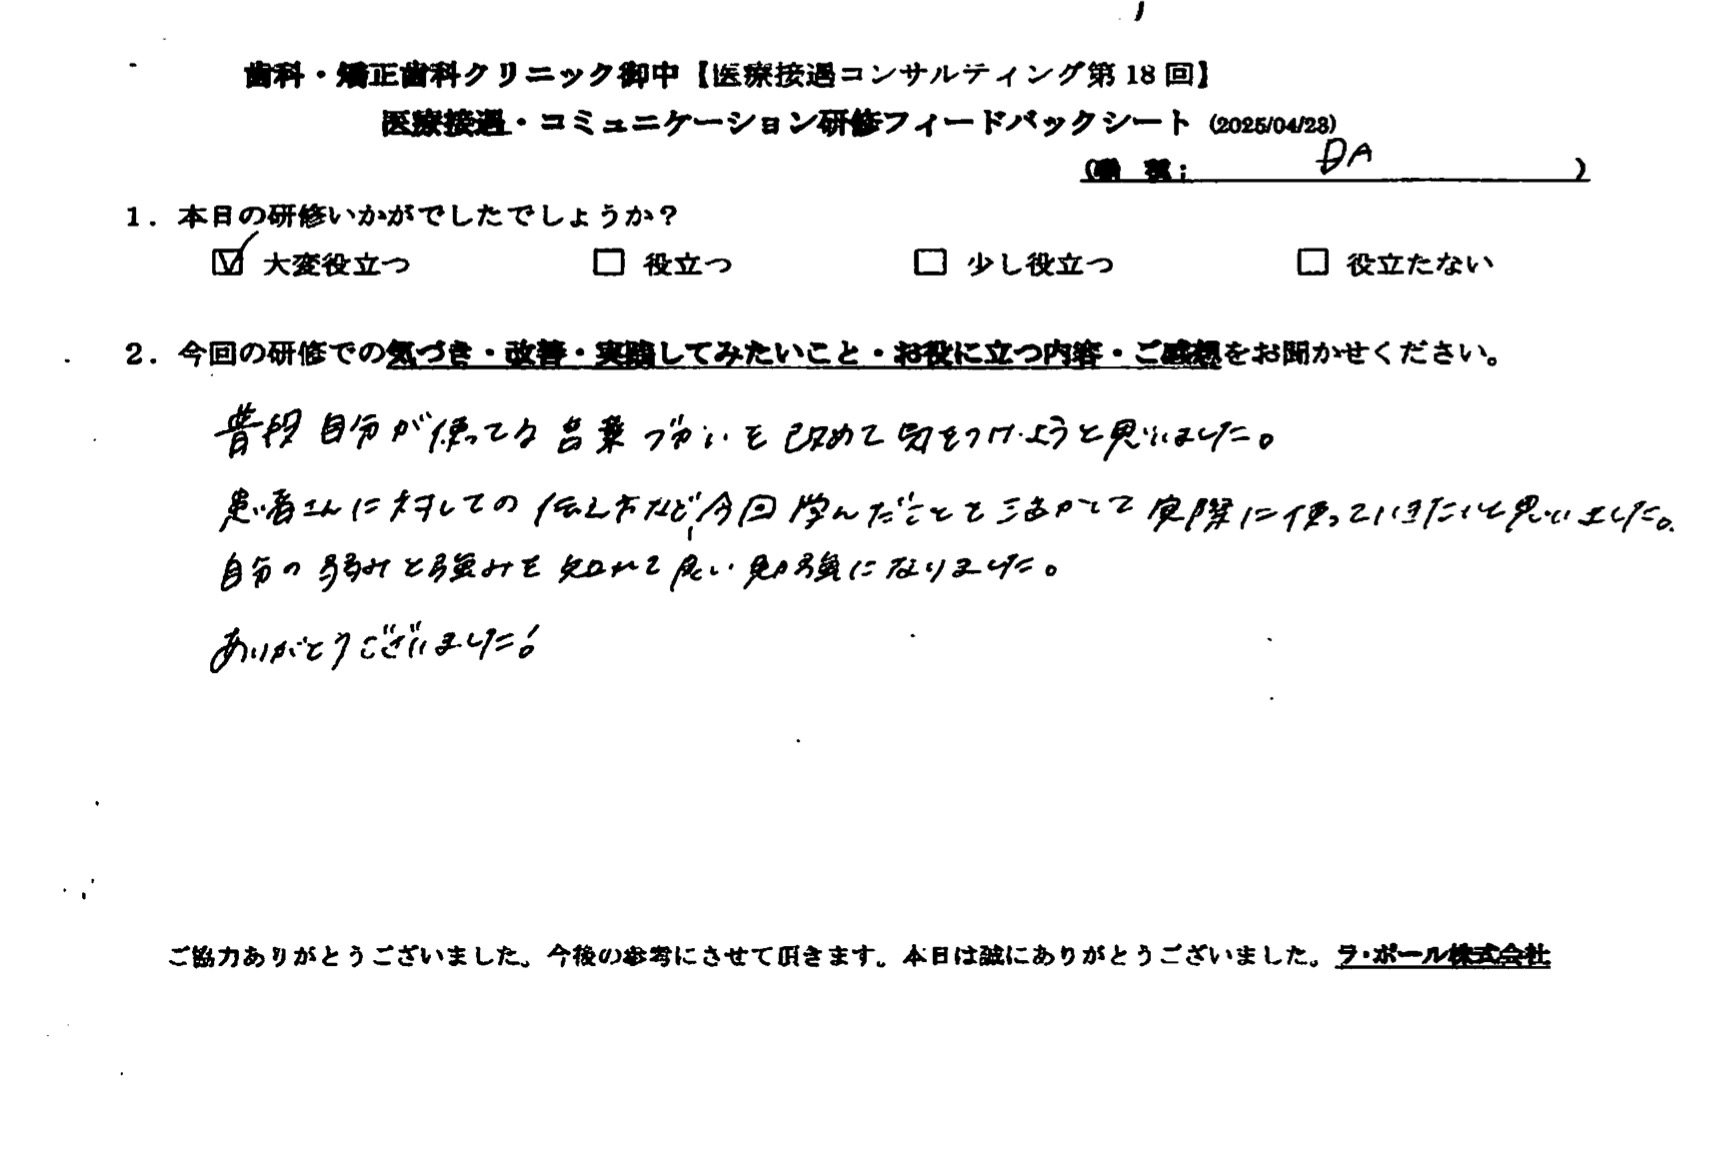 歯科・矯正歯科クリニック御中【医療接遇コンサルティング第18回】
医療接遇・コミュニケーション研修フィードバックシート (2025/04/23)
(職 種: DA )
1. 本日の研修いかがでしたでしょうか?
☑ 大変役立つ □ 役立つ □ 少し役立つ □ 役立たない
2. 今回の研修での気づき・改善・実践してみたいこと・お役に立つ内容・ご感想をお聞かせください。
普段自分が使ってる言葉づかいを改めて気をつけようと思いました。
患者さんに対しての伝え方など、今回学んだことを活かして実際に使っていきたいと思いました。
自分の弱みと強みを知れて良い勉強になりました。
ありがとうございました!
ご協力ありがとうございました。今後の参考にさせて頂きます。本日は誠にありがとうございました。ラ・ポール株式会社